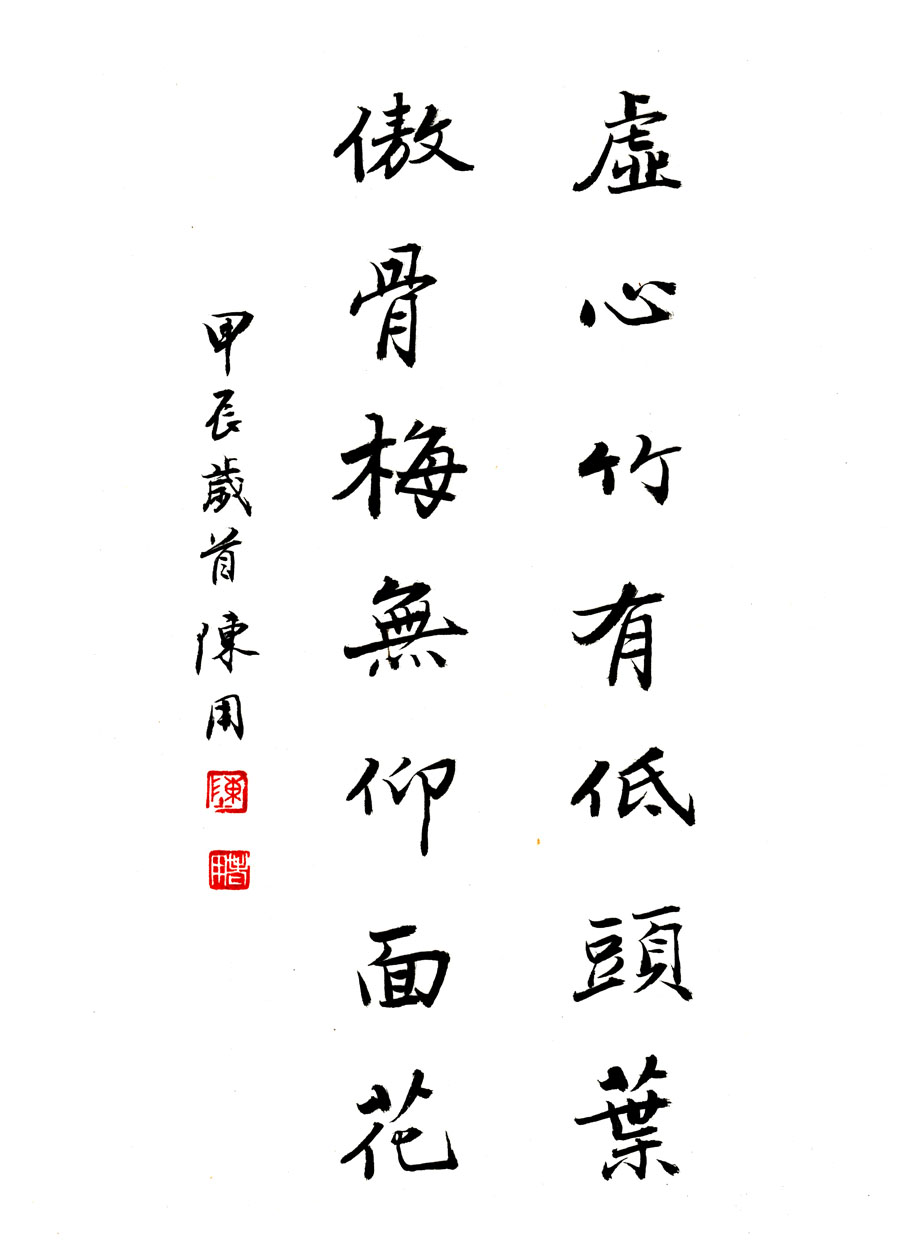 虛心竹有低頭葉
傲骨梅無仰面花
甲辰歲首陳用
陳